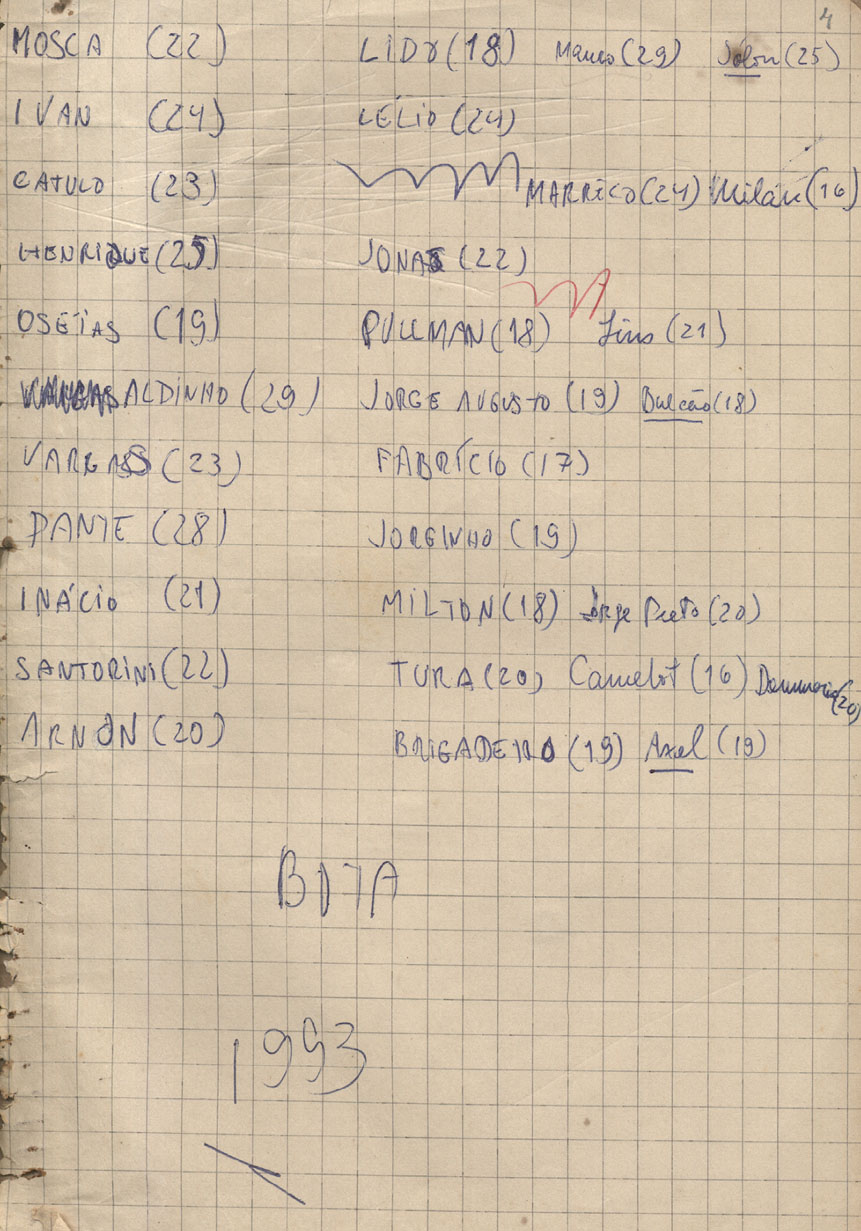 4
MOSCA (22) LIDO (18) Manco (29) Sólon (25)
IVAN (24) LÉLIO (24)
CATULO (23) MARRECO (24) Milán (16)
HENRIQUE (25) JONAS (22)
OSEÍAS (19) PULLMAN (18) Lins (21)
ALDINHO (29) JORGE AUGUSTO (19) Dulcão (18)
VARGAS (23) FABRÍCIO (17)
DANTE (28) JORGINHO (19)
INÁCIO (21) MILTON (18) Jorge Preto (20)
SANTORINI (22) TURA (20) Camelot (16) (20)
ARNON (20) BRIGADEIRO (19) Axel (19)
BOTA
1993